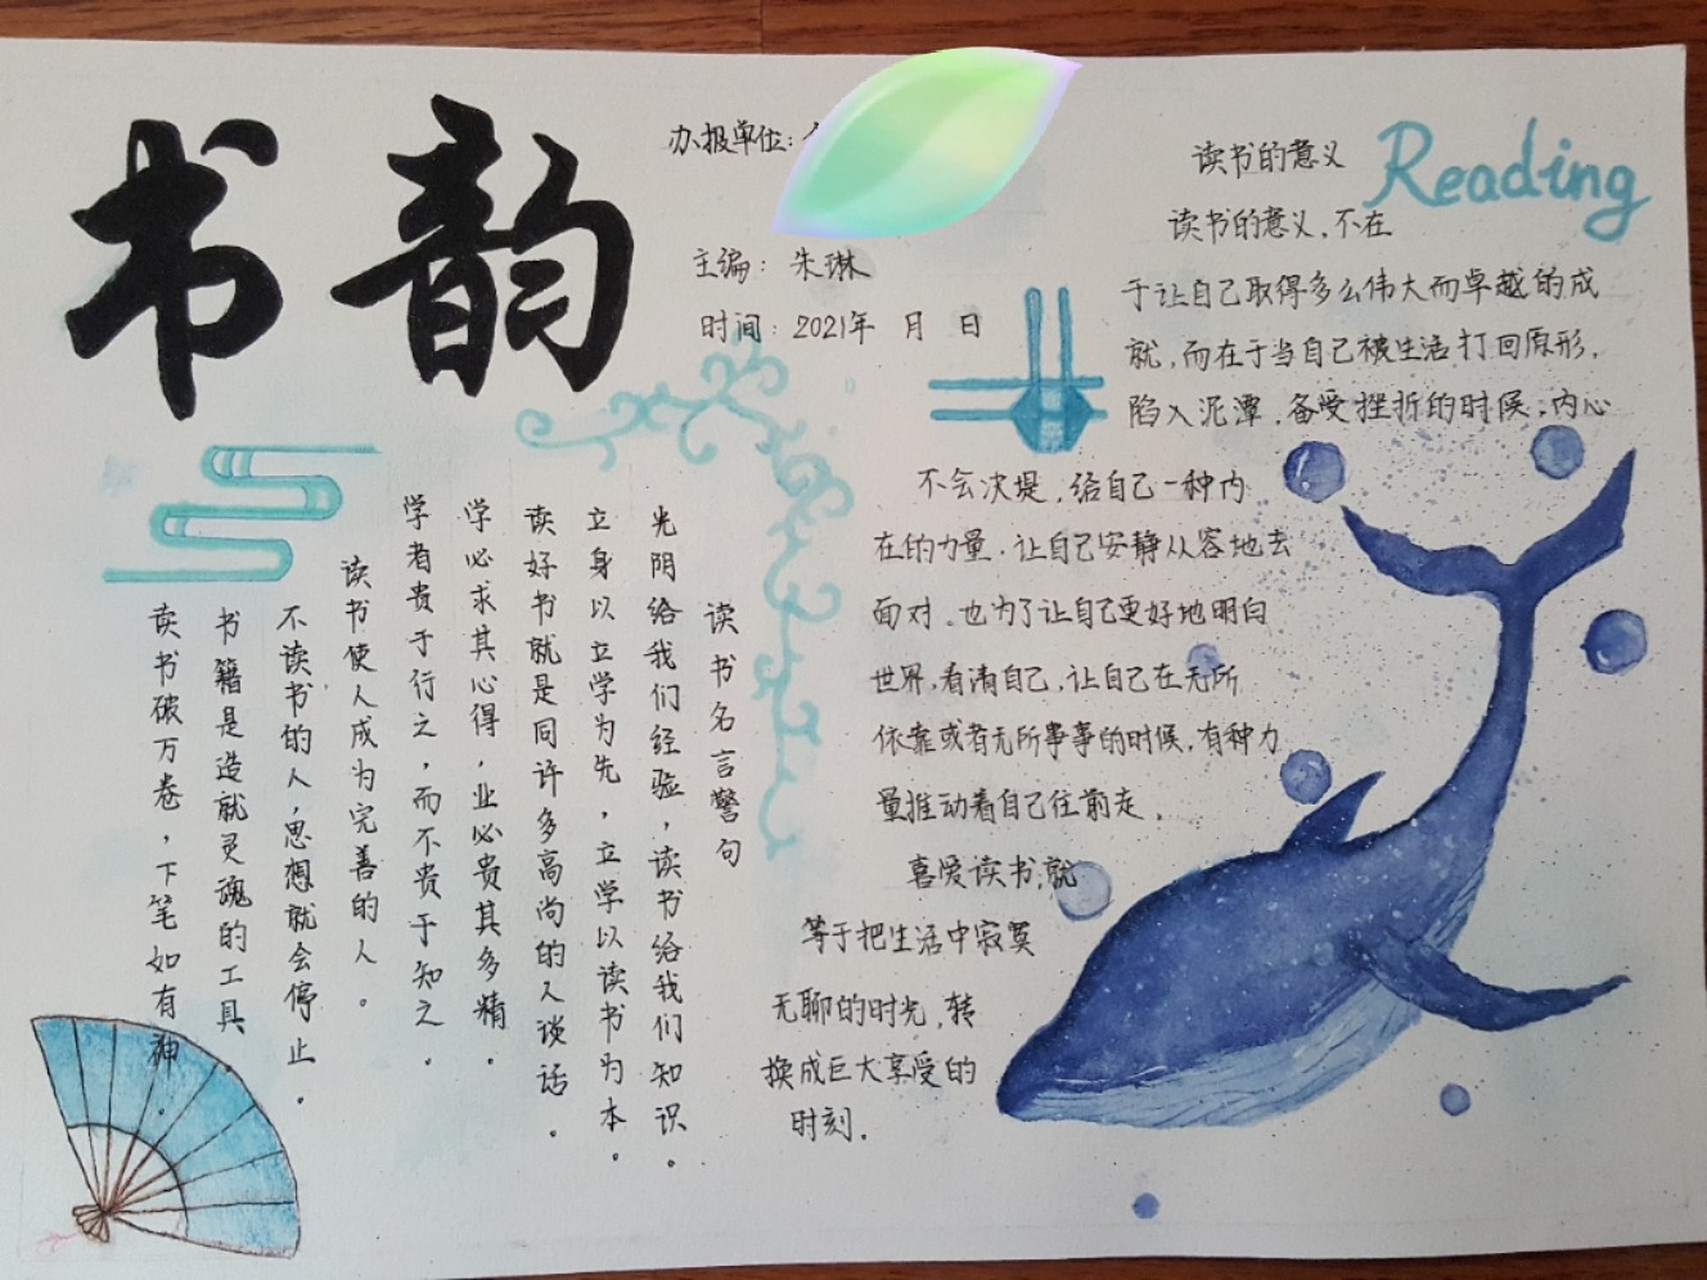 书韵
办报单位:
主编: 朱琳
时间: 2021年 月 日
Reading
读书的意义
读书的意义,不在
于让自己取得多么伟大而卓越的成
就,而在于当自己被生活打回原形,
陷入泥潭,备受挫折的时候,内心
不会决堤,给自己一种内
在的力量,让自己安静从容地去
面对。也为了让自己更好地明白
世界,看清自己,让自己在无所
依靠或者无所事事的时候,有种力
量推动着自己往前走。
喜爱读书,就
等于把生活中寂寞
无聊的时光,转
换成巨大享受的
时刻。
读书名言警句
光阴给我们经验,读书给我们知识。
立身以立学为先,立学以读书为本。
读好书就是同许多高尚的人谈话。
学必求其心得,业必贵其多精。
学者贵于行之,而不贵于知之。
读书使人成为完善的人。
不读书的人,思想就会停止。
书籍是造就灵魂的工具
读书破万卷,下笔如有神。